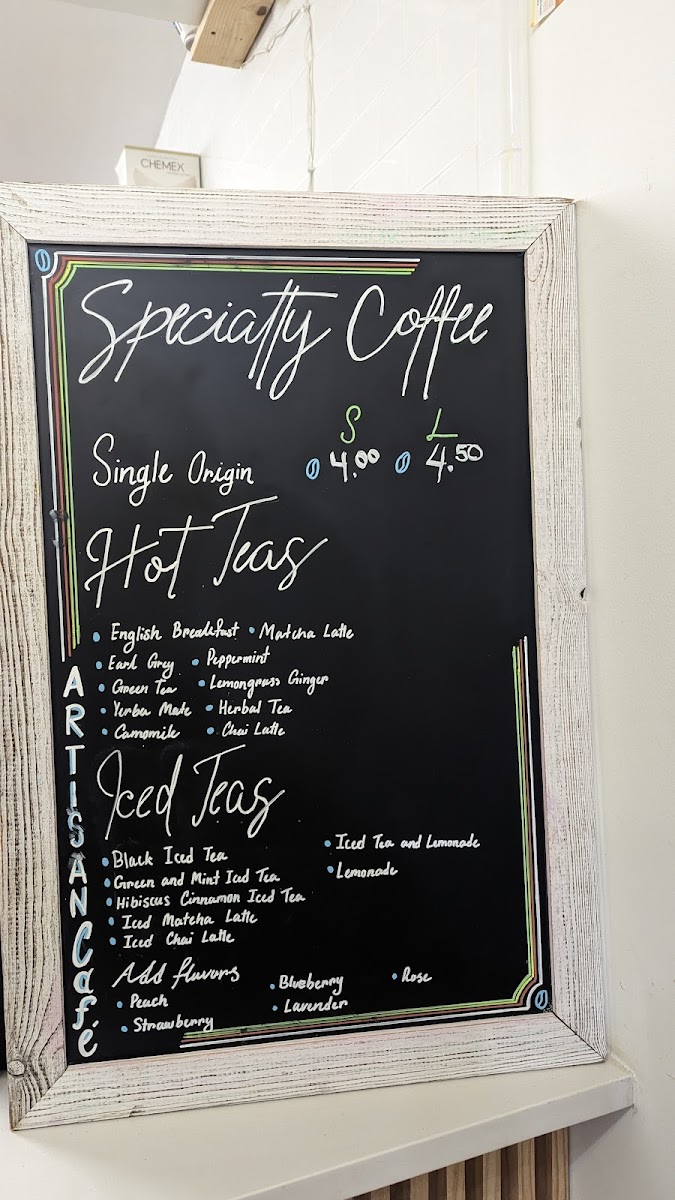 CHEMEX
Specialty Coffee
S L
Single Origin 4.00 4.50
Hot Teas
• English Breakfast • Matcha Latte
• Earl Grey • Peppermint
• Green Tea • Lemongrass Ginger
• Yerba Mate • Herbal Tea
• Camomile • Chai Latte
Iced Teas
• Black Iced Tea
• Green and Mint Iced Tea
• Hibiscus Cinnamon Iced Tea
• Iced Matcha Latte
• Iced Chai Latte
• Iced Tea and Lemonade
• Lemonade
Add flavors
• Peach
• Strawberry
• Blueberry
• Lavender
• Rose
ARTISAN Café